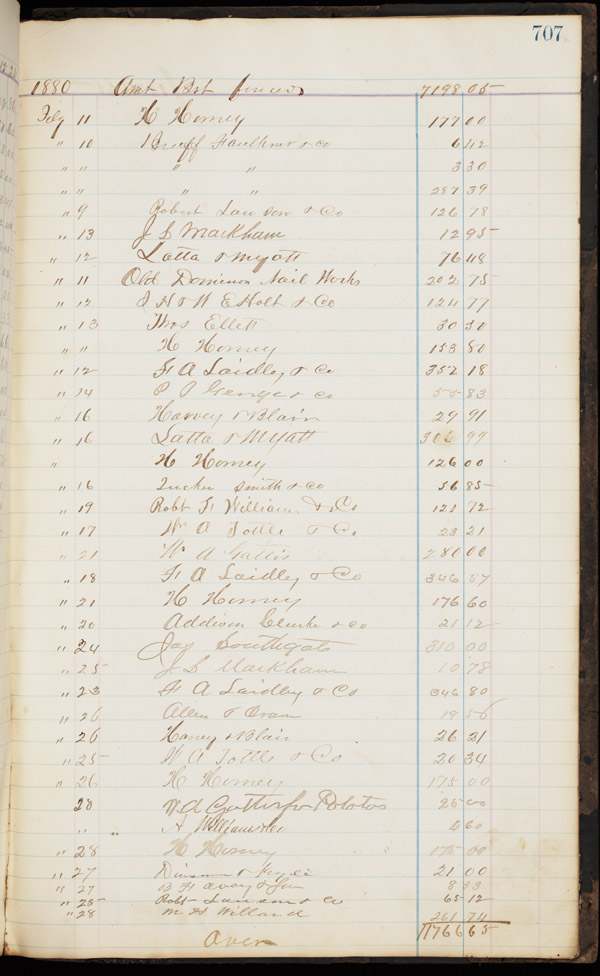 707
1880 Amt Brt forward 7198 05
Feby 11 H Horney 177 00
" 10 Bruff Faulkner & co 6 42
" " " " 3 30
" " " " 287 39
" 9 Robert Lawson & Co 126 78
" 13 J S Markham 12 95
" 12 Latta & Myatt 76 48
" 11 Old Dominion Nail Works 202 75
" 12 J H & W E Holt & Co 124 77
" 13 Thos Ellett 30 30
" " H Horney 153 80
" 12 F A Laidley & Co 352 18
" 14 & co 55 83
" 16 Harvey & Blair 29 91
" 16 Latta & Myatt 306 99
" H Horney 126 00
" 16 Tucker Smith & Co 56 85
" 19 Robt F Williams & Co 121 72
" 17 Wm A Tottle & Co 23 21
" 21 W A Gattis 280 00
" 18 F A Laidley & Co 346 57
" 21 H Horney 176 60
" 20 Addison & co 21 12
" 24 Jas Southgate 310 00
" 25 J S Markham 10 78
" 23 F A Laidley & Co 346 80
" 26 Allen & 19 56
" 26 Harvey & Blair 26 21
" 25 W A Tottle & Co 20 34
" 26 H Horney 175 00
28 W A Gattis for Potatos 25 00
" " A 6 60
" 28 H Horney 175 00
" 27 21 00
" 27 B F Avery & Son 8 33
" 25 Robt Lawson & Co 65 12
" 28 M H Willard 261 74
Over 11766 65